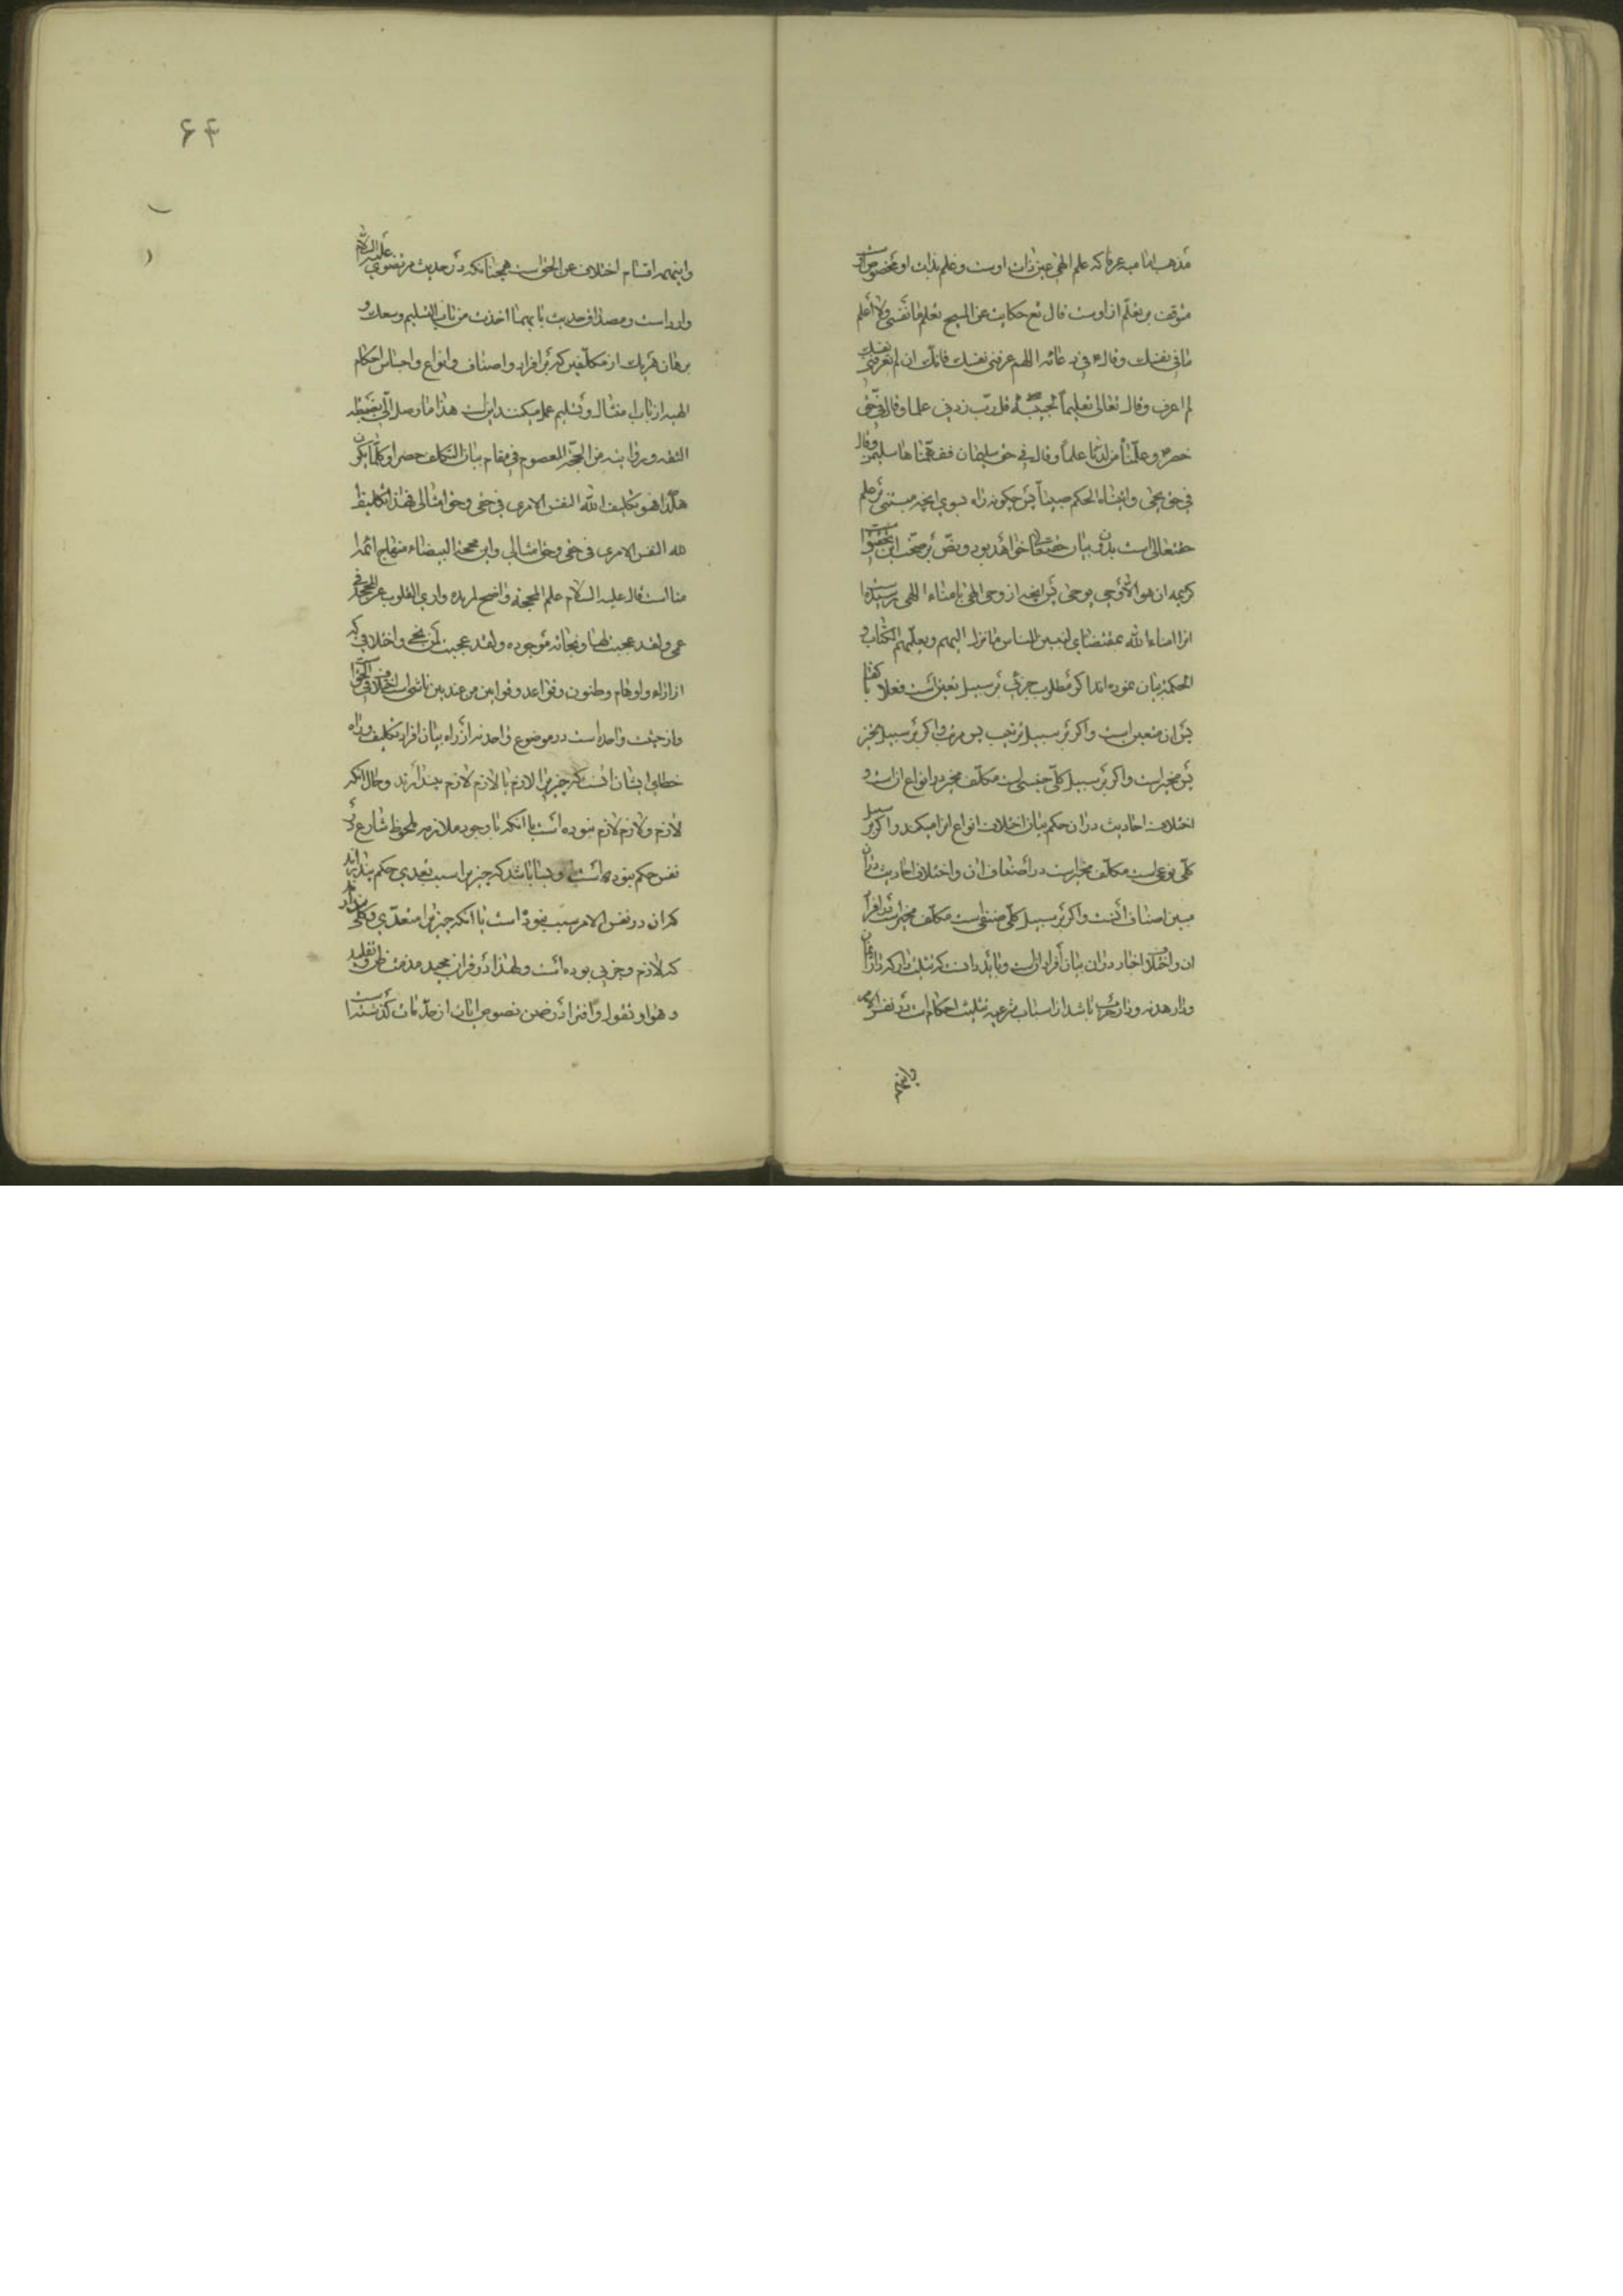 مذهب امامیه عرفا که علم الهی عین ذات اوست و علم بذات او مخصوص
موقوف بر تعلم از اوست قال تع حکایت عن المسیح تعلم ما فی نفسی ولا اعلم
ما فی نفسک وقال ۴ فی دعائه اللهم عرفنی نفسک فانک ان لم تعرفنی نفسک
لم اعرف وقال تعالی تعلیماً لحبیبه قل رب زدنی علما وقال فی حق
خضر ۴ و علمناه من لدنا علماً وقال فی حق سلیمان ففهمناها سلیمن وقال
فی حق یحیی واتیناه الحکم صبیاً پس چگونه راه بسوی انچه مبتنی بر علم
حقتعالی است بدون بیان حقتعالی خواهد بود و نص بر صحت این
کریمه ان هو الا وحی یوحی پس انچه از وحی الهی بامناء الهی رسیده
انرا امناء الله بمقتضای لتبین للناس ما نزل الیهم و یعلمهم الکتاب و
الحکمة بیان نموده اند اگر مطلوب جزئی بر سبیل تعین است فعلا
پس ان متعین است واگر بر سبیل ترتیب پس مرتب واگر بر سبیل تخیر
پس مخیر است واگر بر سبیل کلی جنسی است مکلف مخیر در انواع ان است و
اختلاف احادیث در ان حکم بیان اختلاف انواع انرا میکند واگر بر سبیل
کلی نوعی است مکلف مخیر است در اصناف ان و اختلاف احادیث در ان
مبین اصناف انست واگر بر سبیل کلی صنفی است مکلف مخیر است در افراد
ان و اختلاف اخبار در ان بیان افراد انست و باید دانست که تثلیث دار که دار ایمان
و دار هدنه و دار حرب باشد از اسباب شرعیه تثلیث احکام است در نفس الامر
واینهمه
۶۴
واینهمه اقسام اختلاف عن الحق است همچنانکه در حدیث مرتضوی علیه السلام
وارد است و مصداق حدیث بایهما اخذت من باب التسلیم وسعک و
برهان هریک از مکلفین که بر افراد و اصناف و انواع و اجناس احکام
الهیه از باب امتثال و تسلیم عمل میکنند این است هذا ما وصل الی بضبط
الثقه و روایته من الحجة المعصوم فی مقام بیان التکلیف حصرا وکلما یکن
هکذا فهو تکلیف الله النفس الامری فی حقی وحق امثالی فهذا تکلیف
الله النفس الامری فی حقی وحق امثالی واین محجة البیضاء منهاج ائمه
ما است قال علیه السلام علم المحجة واضح لمریده واری القلوب عن المحجة فی
عمی ولقد عجبت لهالک ونجاته موجوده ولقد عجبت لمن نجی و اختلافی که
از اراء و اوهام و ظنون و قواعد و قوانین من عندیین ناشی است
و از حیث واحد است در موضوع واحد نه از راه بیان افراد تکلیف و راه
خطای ایشان انست که چیزیرا لازم یا لازم لازم پندارند و حال انکه
لازم و لازم لازم نبوده است یا انکه با وجود ملازمه ملحوظ شارع در
نفس حکم نبوده است و بسا باشد که چیزیرا سبب تعبدی حکم پندارند
که ان در نفس الامر سبب نبوده است یا انکه چیزیرا متعدی و کلی
که لازم و جزیی بوده است و لهذا در قران مجید مذمت ظن و تقلید
و هوا و تقول و افترا در ضمن نصوص ایات از حد مات گذشته است